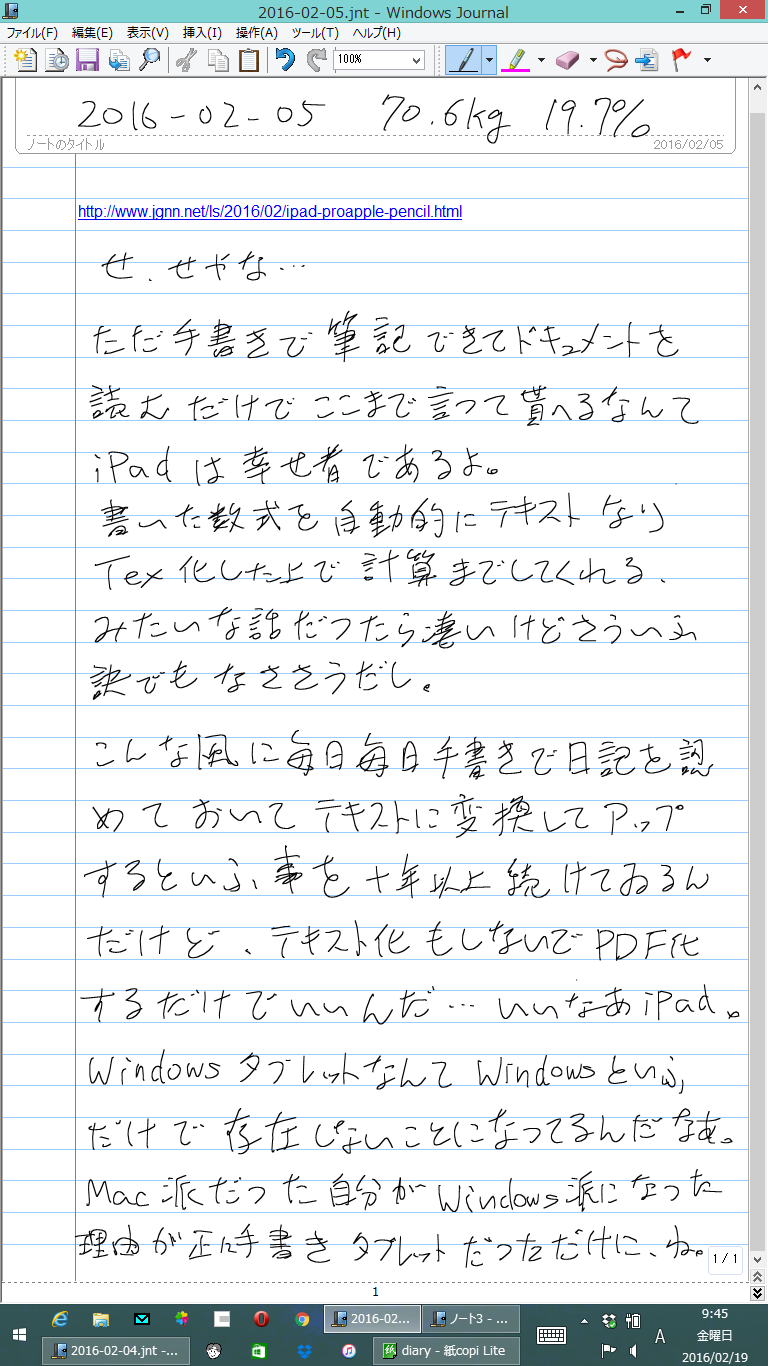 2016-02-05.jnt - Windows Journal
ファイル(F) 編集(E) 表示(V) 挿入(I) 操作(A) ツール(T) ヘルプ(H)
100%
2016-02-05 70.6kg 19.7%
ノートのタイトル 2016/02/05
http://www.jgnn.net/ls/2016/02/ipad-proapple-pencil.html
せ、せやな…
ただ手書きで筆記できてドキュメントを
読むだけでここまで言って貰へるなんて
iPadは幸せ者であるよ。
書いた数式を自動的にテキストなり
Tex化した上で計算までしてくれる、
みたいな話だったら凄いけどさういふ
訳でもなささうだし。
こんな風に毎日毎日手書きで日記を認
めておいてテキストに変換してアップ
するといふ事を十年以上続けてゐるん
だけど、テキスト化もしないでPDF化
するだけでいいんだ…いいなあiPad。
WindowsタブレットなんてWindowsといふ
だけで存在しないことになってるんだなあ。
Mac派だった自分がWindows派になった
理由が正に手書きタブレットだっただけに、ね。
1 / 1
1
2016-02... ノート3 - ...
2016-02-04.jnt -... diary - 紙copi Lite
A
9:45
金曜日
2016/02/19